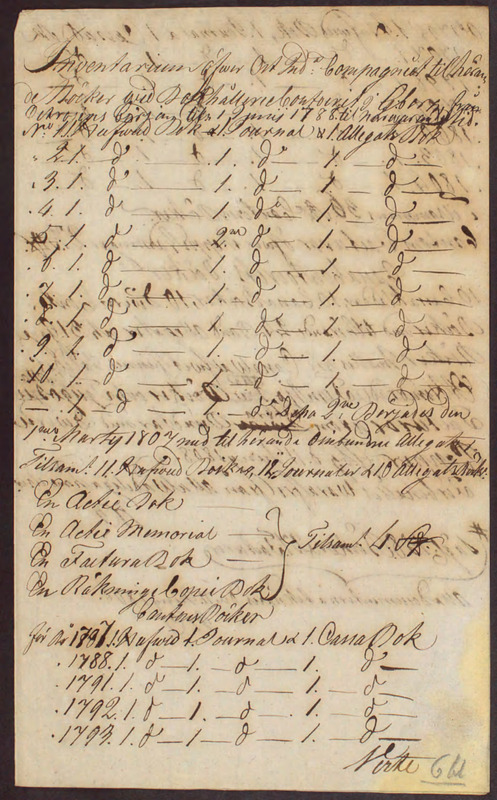 Inventarium öfwer Ost Ind.a Compagniets tilhöran-
de Böcker wid Bokhålleri Contoiret i Götborg från
Octroyens början d. 1 Junii 1788 til närwarande tid.
N.o 1. 1. Hufwud Bok & 1. Journal & 1. Allegat Bok
" 2. 1. d.o — 1. d.o — 1. — d.o
" 3. 1. d — 1. d — 1. — d
" 4. 1. d — 1. d — 1. d
" 5. 1. d — 2.ne d — 1. d
" 6. 1. d — 1. d — 1. d
" 7. 1. d — 1. d — 1. d
" 8. 1. d — 1. d — 1. d
" 9. 1. d — 1. d — 1. d
" 10. 1. d — 1. d — 1. d
— 1. d — 1. d
Martij 1807 med tilhörande Ombundne Allegater
Tilsam. 11. Hufwud Böcker, 12. Journaler & 10 Allegat
En Actie Bok
En Actie Memorial
En Factura Bok
En Räknings Copie Bok
Tilsam. 4. St.
Cantors Böcker
för År 1787. 1. Hufwud 1. Journal & 1. Cassa Bok
" 1788. 1. d — 1. — d — 1. d
" 1791. 1. d — 1. — d — 1. d
" 1792. 1. d — 1. — d — 1. d
" 1793. 1. d — 1. — d — 1. d